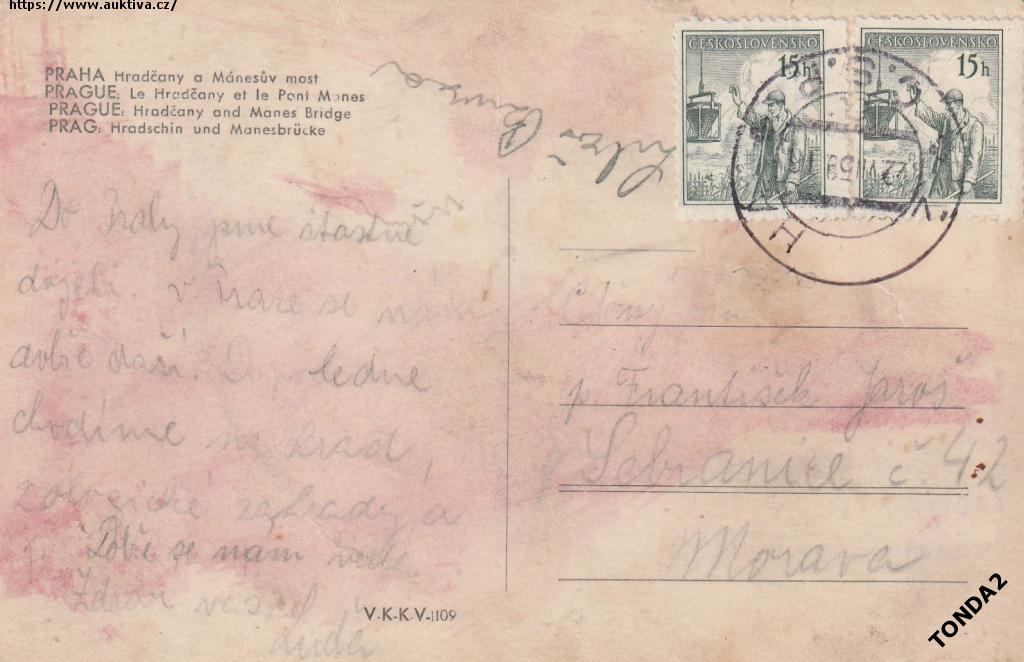 https://www.auktiva.cz/
PRAHA Hradčany a Mánesův most
PRAGUE: Le Hradčany et le Pont Manes
PRAGUE: Hradčany and Manes Bridge
PRAG: Hradschin und Manesbrücke
ČESKOSLOVENSKO
15h
ČESKOSLOVENSKO
15h
Do Prahy jsme šťastně
dojeli. V Praze se nám
dobře daří. Dopoledne
chodíme na hrad,
zologické zahrady a
j. Dobře se nám vede
Zdraví vas
Luda
Ctěný
p František Jaroš
Sebranice č. 42
Morava
V·K·K·V-1109
TONDA2